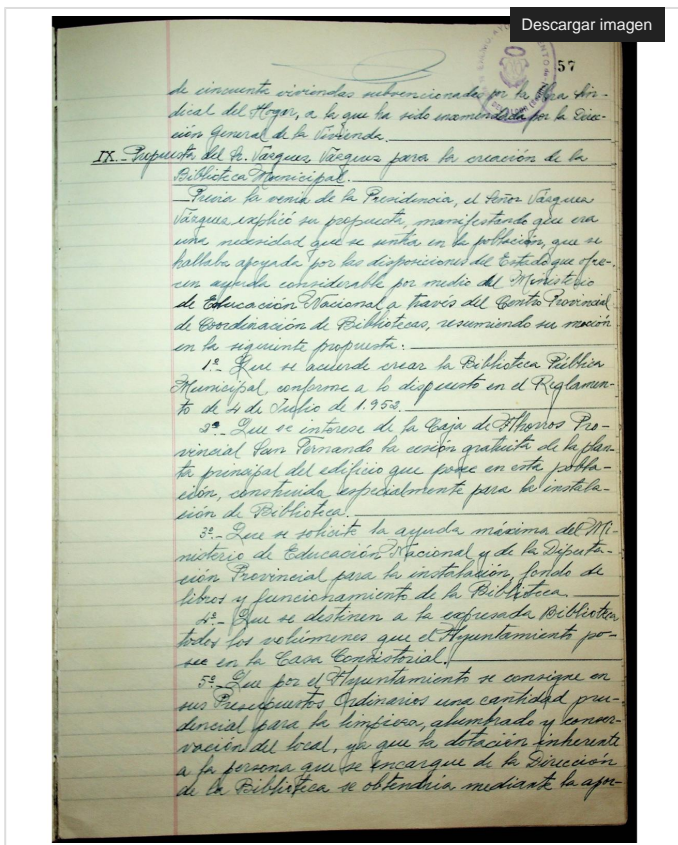 Descargar imagen
57
de cincuenta viviendas subvencionadas por la Obra Sin-
dical del Hogar, a la que ha sido encomendada por la Direc-
ción General de la Vivienda.
IX.- Propuesta del Sr. Vázquez Vázquez para la creación de la
Biblioteca Municipal.
Previa la venia de la Presidencia, el Señor Vázquez
Vázquez explicó su propuesta, manifestando que era
una necesidad que se sentía en la población, que se
hallaba apoyada por las disposiciones del Estado que ofre-
cen ayuda considerable por medio del Ministerio
de Educación Nacional a través del Centro Provincial
de Coordinación de Bibliotecas, resumiendo su moción
en la siguiente propuesta:
1º.- Que se acuerde crear la Biblioteca Pública
Municipal conforme a lo dispuesto en el Reglamen-
to de 4 de Julio de 1.952.
2º.- Que se interese de la Caja de Ahorros Pro-
vincial San Fernando la cesión gratuita de la plan-
ta principal del edificio que posee en esta pobla-
ción, construida especialmente para la instala-
ción de Biblioteca.
3º.- Que se solicite la ayuda máxima del Mi-
nisterio de Educación Nacional y de la Diputa-
ción Provincial para la instalación, fondo de
libros y funcionamiento de la Biblioteca.
4º.- Que se destinen a la expresada Biblioteca
todos los volúmenes que el Ayuntamiento po-
see en la Casa Consistorial.
5º.- Que por el Ayuntamiento se consigne en
sus Presupuestos Ordinarios una cantidad pru-
dencial para la limpieza, alumbrado y conser-
vación del local, ya que la dotación inherente
a la persona que se encargue de la Dirección
de la Biblioteca se obtendría mediante la apor-